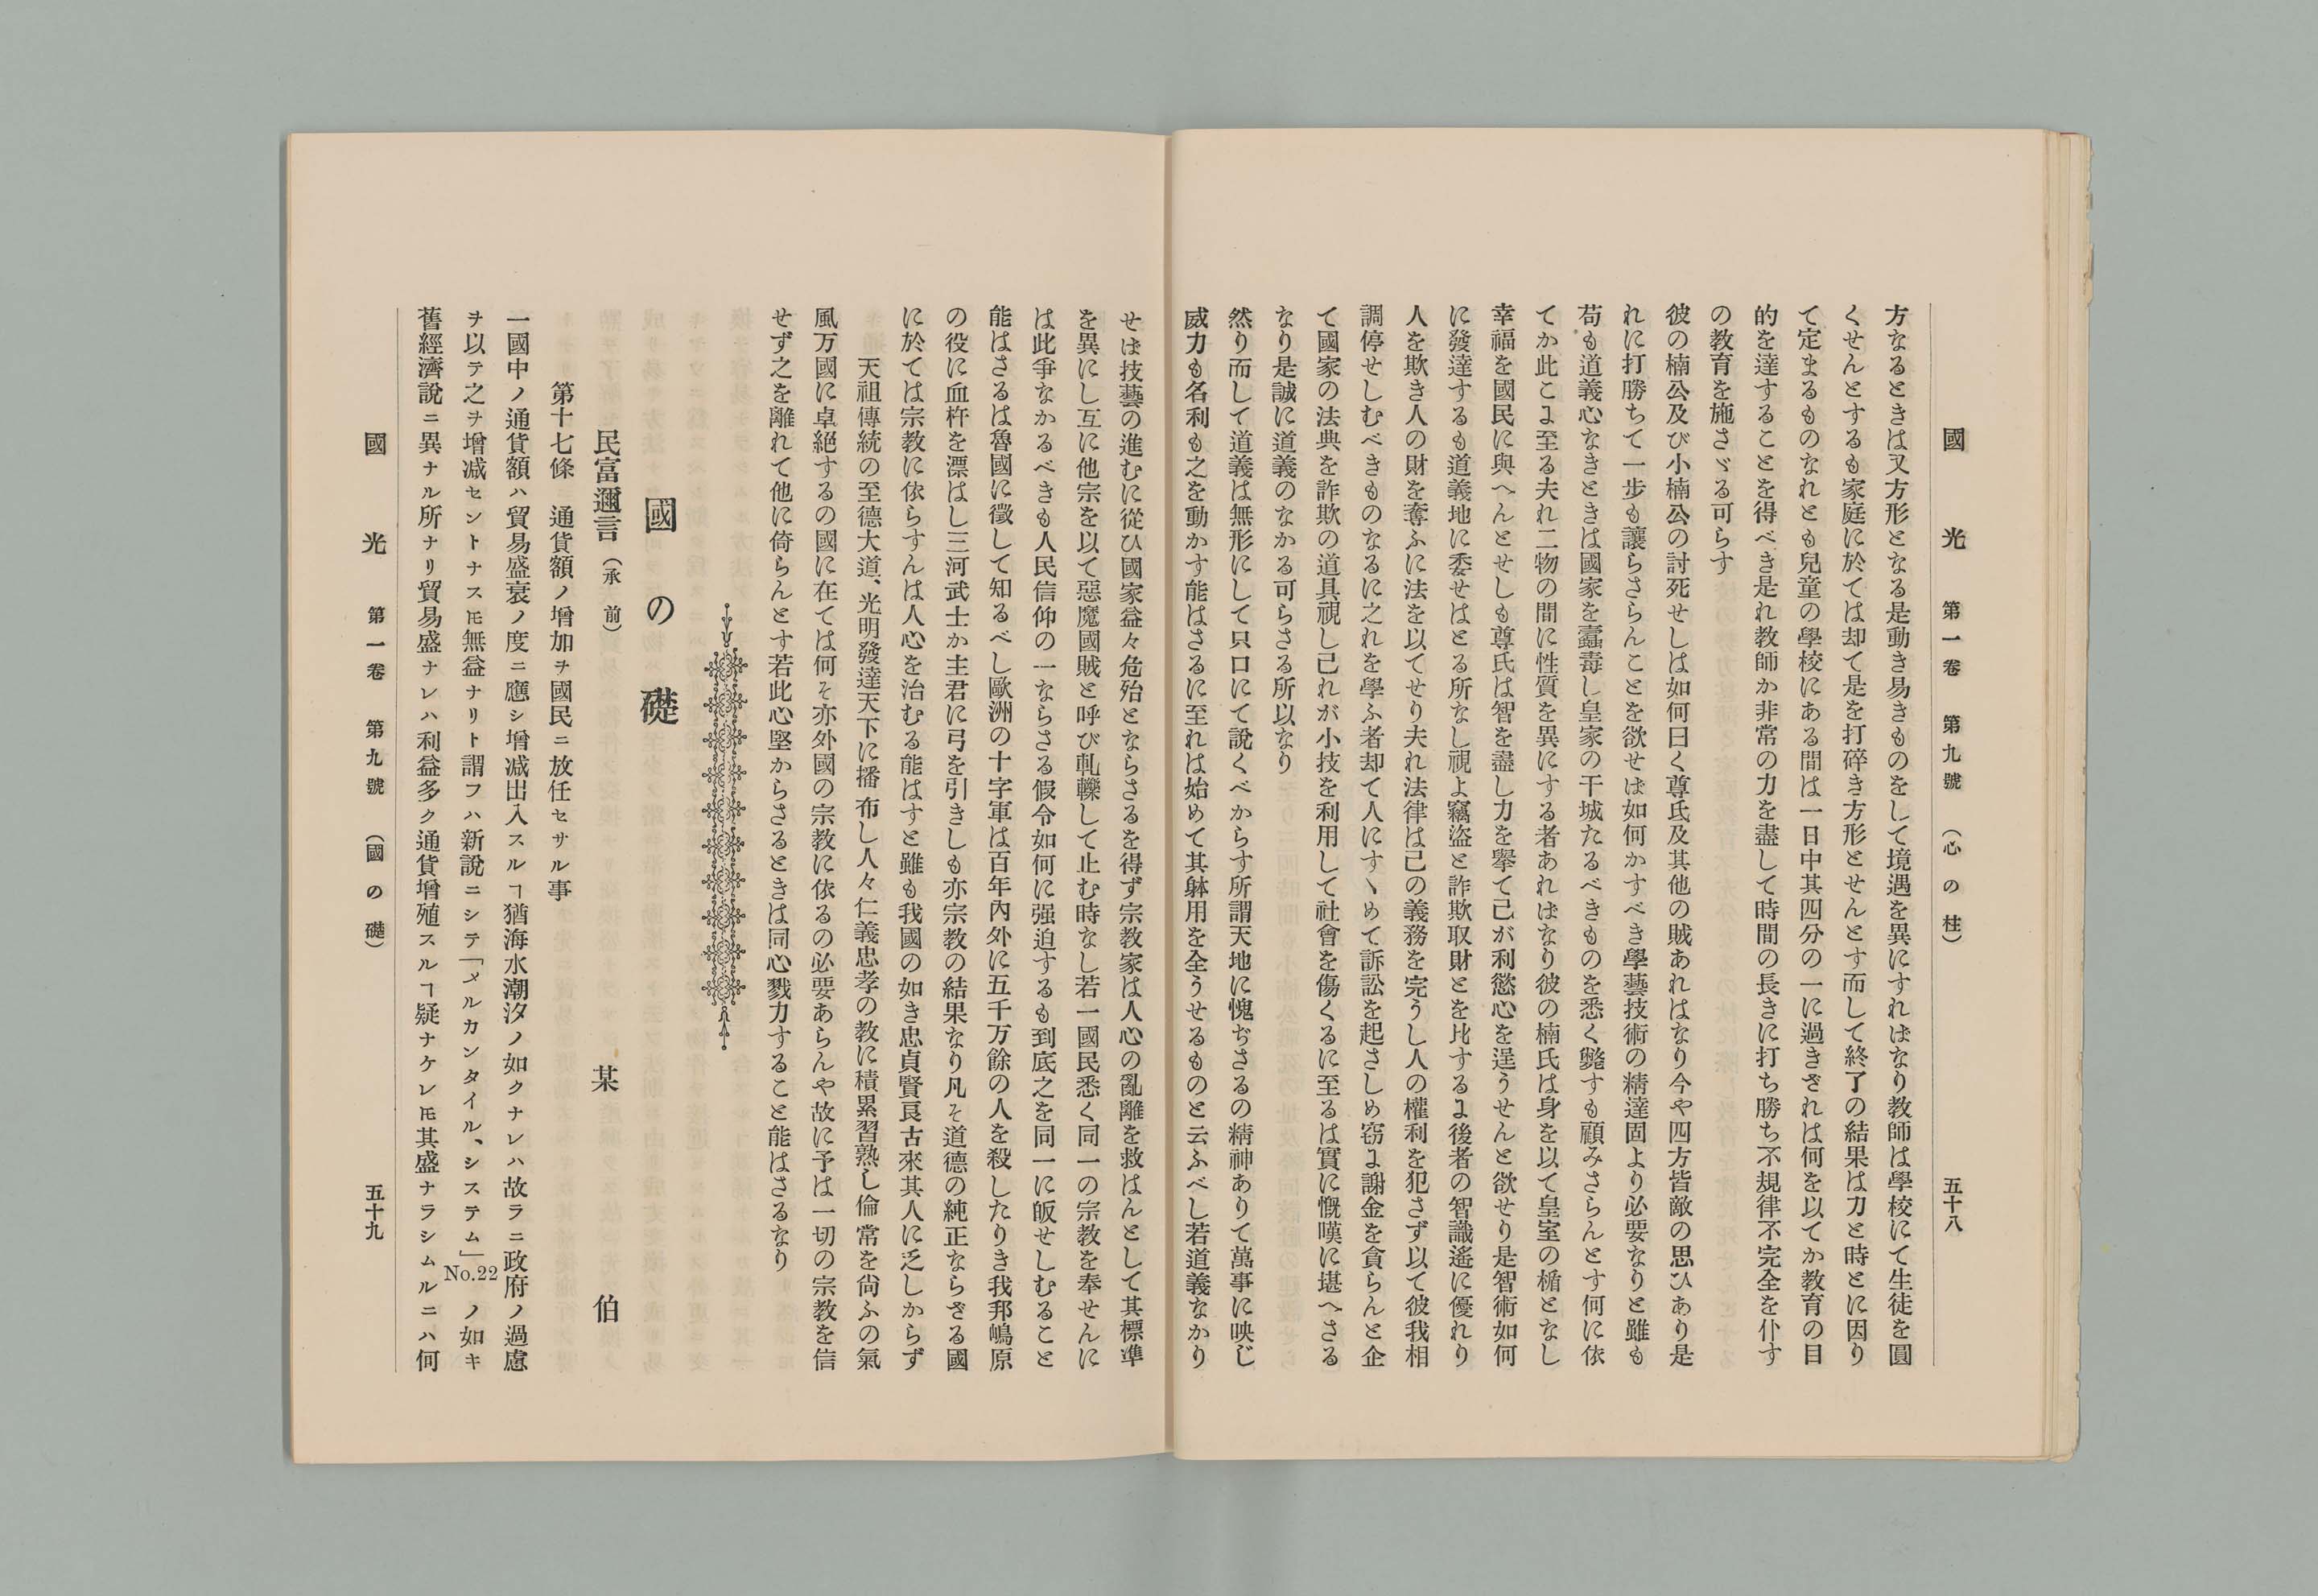 國光 第一卷 第九號 (心の柱) 五十八
方なるときは又方形となる是動き易きものをして境遇を異にすれはなり教師は學校にて生徒を圓
くせんとするも家庭に於ては却て是を打碎き方形とせんとす而して終了の結果は力と時とに因り
て定まるものなれとも兒童の學校にある間は一日中其四分の一に過きされは何を以てか教育の目
的を達することを得べき是れ教師か非常の力を盡して時間の長きに打ち勝ち不規律不完全を仆す
の教育を施さゞる可らす
彼の楠公及び小楠公の討死せしは如何曰く尊氏及其他の賊あれはなり今や四方皆敵の思ひあり是
れに打勝ちて一步も讓らさらんことを欲せは如何かすべき學藝技術の精達固より必要なりと雖も
苟も道義心なきときは國家を蠧毒し皇家の干城たるべきものを悉く斃すも顧みさらんとす何に依
てか此こよ至る夫れ二物の間に性質を異にする者あれはなり彼の楠氏は身を以て皇室の楯となし
幸福を國民に與へんとせしも尊氏は智を盡し力を擧て己が利慾心を逞うせんと欲せり是智術如何
に發達するも道義地に委せはとる所なし視よ竊盜と詐欺取財とを比するよ後者の智識遙に優れり
人を欺き人の財を奪ふに法を以てせり夫れ法律は己の義務を完うし人の權利を犯さず以て彼我相
調停せしむべきものなるに之れを學ふ者却て人にすゝめて訴訟を起さしめ窃よ謝金を貪らんと企
て國家の法典を詐欺の道具視し己れが小技を利用して社會を傷くるに至るは實に慨嘆に堪へさる
なり是誠に道義のなかる可らさる所以なり
然り而して道義は無形にして只口にて說くべからす所謂天地に愧ぢさるの精神ありて萬事に映じ
威力も名利も之を動かす能はさるに至れは始めて其躰用を全うせるものと云ふべし若道義なかり
せは技藝の進むに從ひ國家益々危殆とならさるを得ず宗教家は人心の亂離を救はんとして其標準
を異にし互に他宗を以て惡魔國賊と呼び軋轢して止む時なし若一國民悉く同一の宗教を奉せんに
は此爭なかるべきも人民信仰の一ならさる假令如何に强迫するも到底之を同一に皈せしむること
能はさるは魯國に徵して知るべし歐洲の十字軍は百年內外に五千万餘の人を殺したりき我邦嶋原
の役に血杵を漂はし三河武士か主君に弓を引きしも亦宗教の結果なり凡そ道德の純正ならざる國
に於ては宗教に依らすんは人心を治むる能はすと雖も我國の如き忠貞賢良古來其人に乏しからず
天祖傳統の至德大道、光明發達天下に播布し人々仁義忠孝の教に積累習熟し倫常を尙ふの氣
風万國に卓絕するの國に在ては何そ亦外國の宗教に依るの必要あらんや故に予は一切の宗教を信
せず之を離れて他に倚らんとす若此心堅からさるときは同心戮力すること能はさるなり
國の礎
民富邇言 (承前) 某伯
第十七條 通貨額ノ增加ヲ國民ニ放任セサル事
一國中ノ通貨額ハ貿易盛衰ノ度ニ應シ增减出入スルヿ猶海水潮汐ノ如クナレハ故ラニ政府ノ過慮
ヲ以テ之ヲ增减セントナスモ無益ナリト謂フハ新說ニシテ「メルカンタイル、システム」ノ如キ
No.22
舊經濟說ニ異ナル所ナリ貿易盛ナレハ利益多ク通貨增殖スルヿ疑ナケレ𪜈其盛ナラシムルニハ何
國光 第一卷 第九號 (國の礎) 五十九